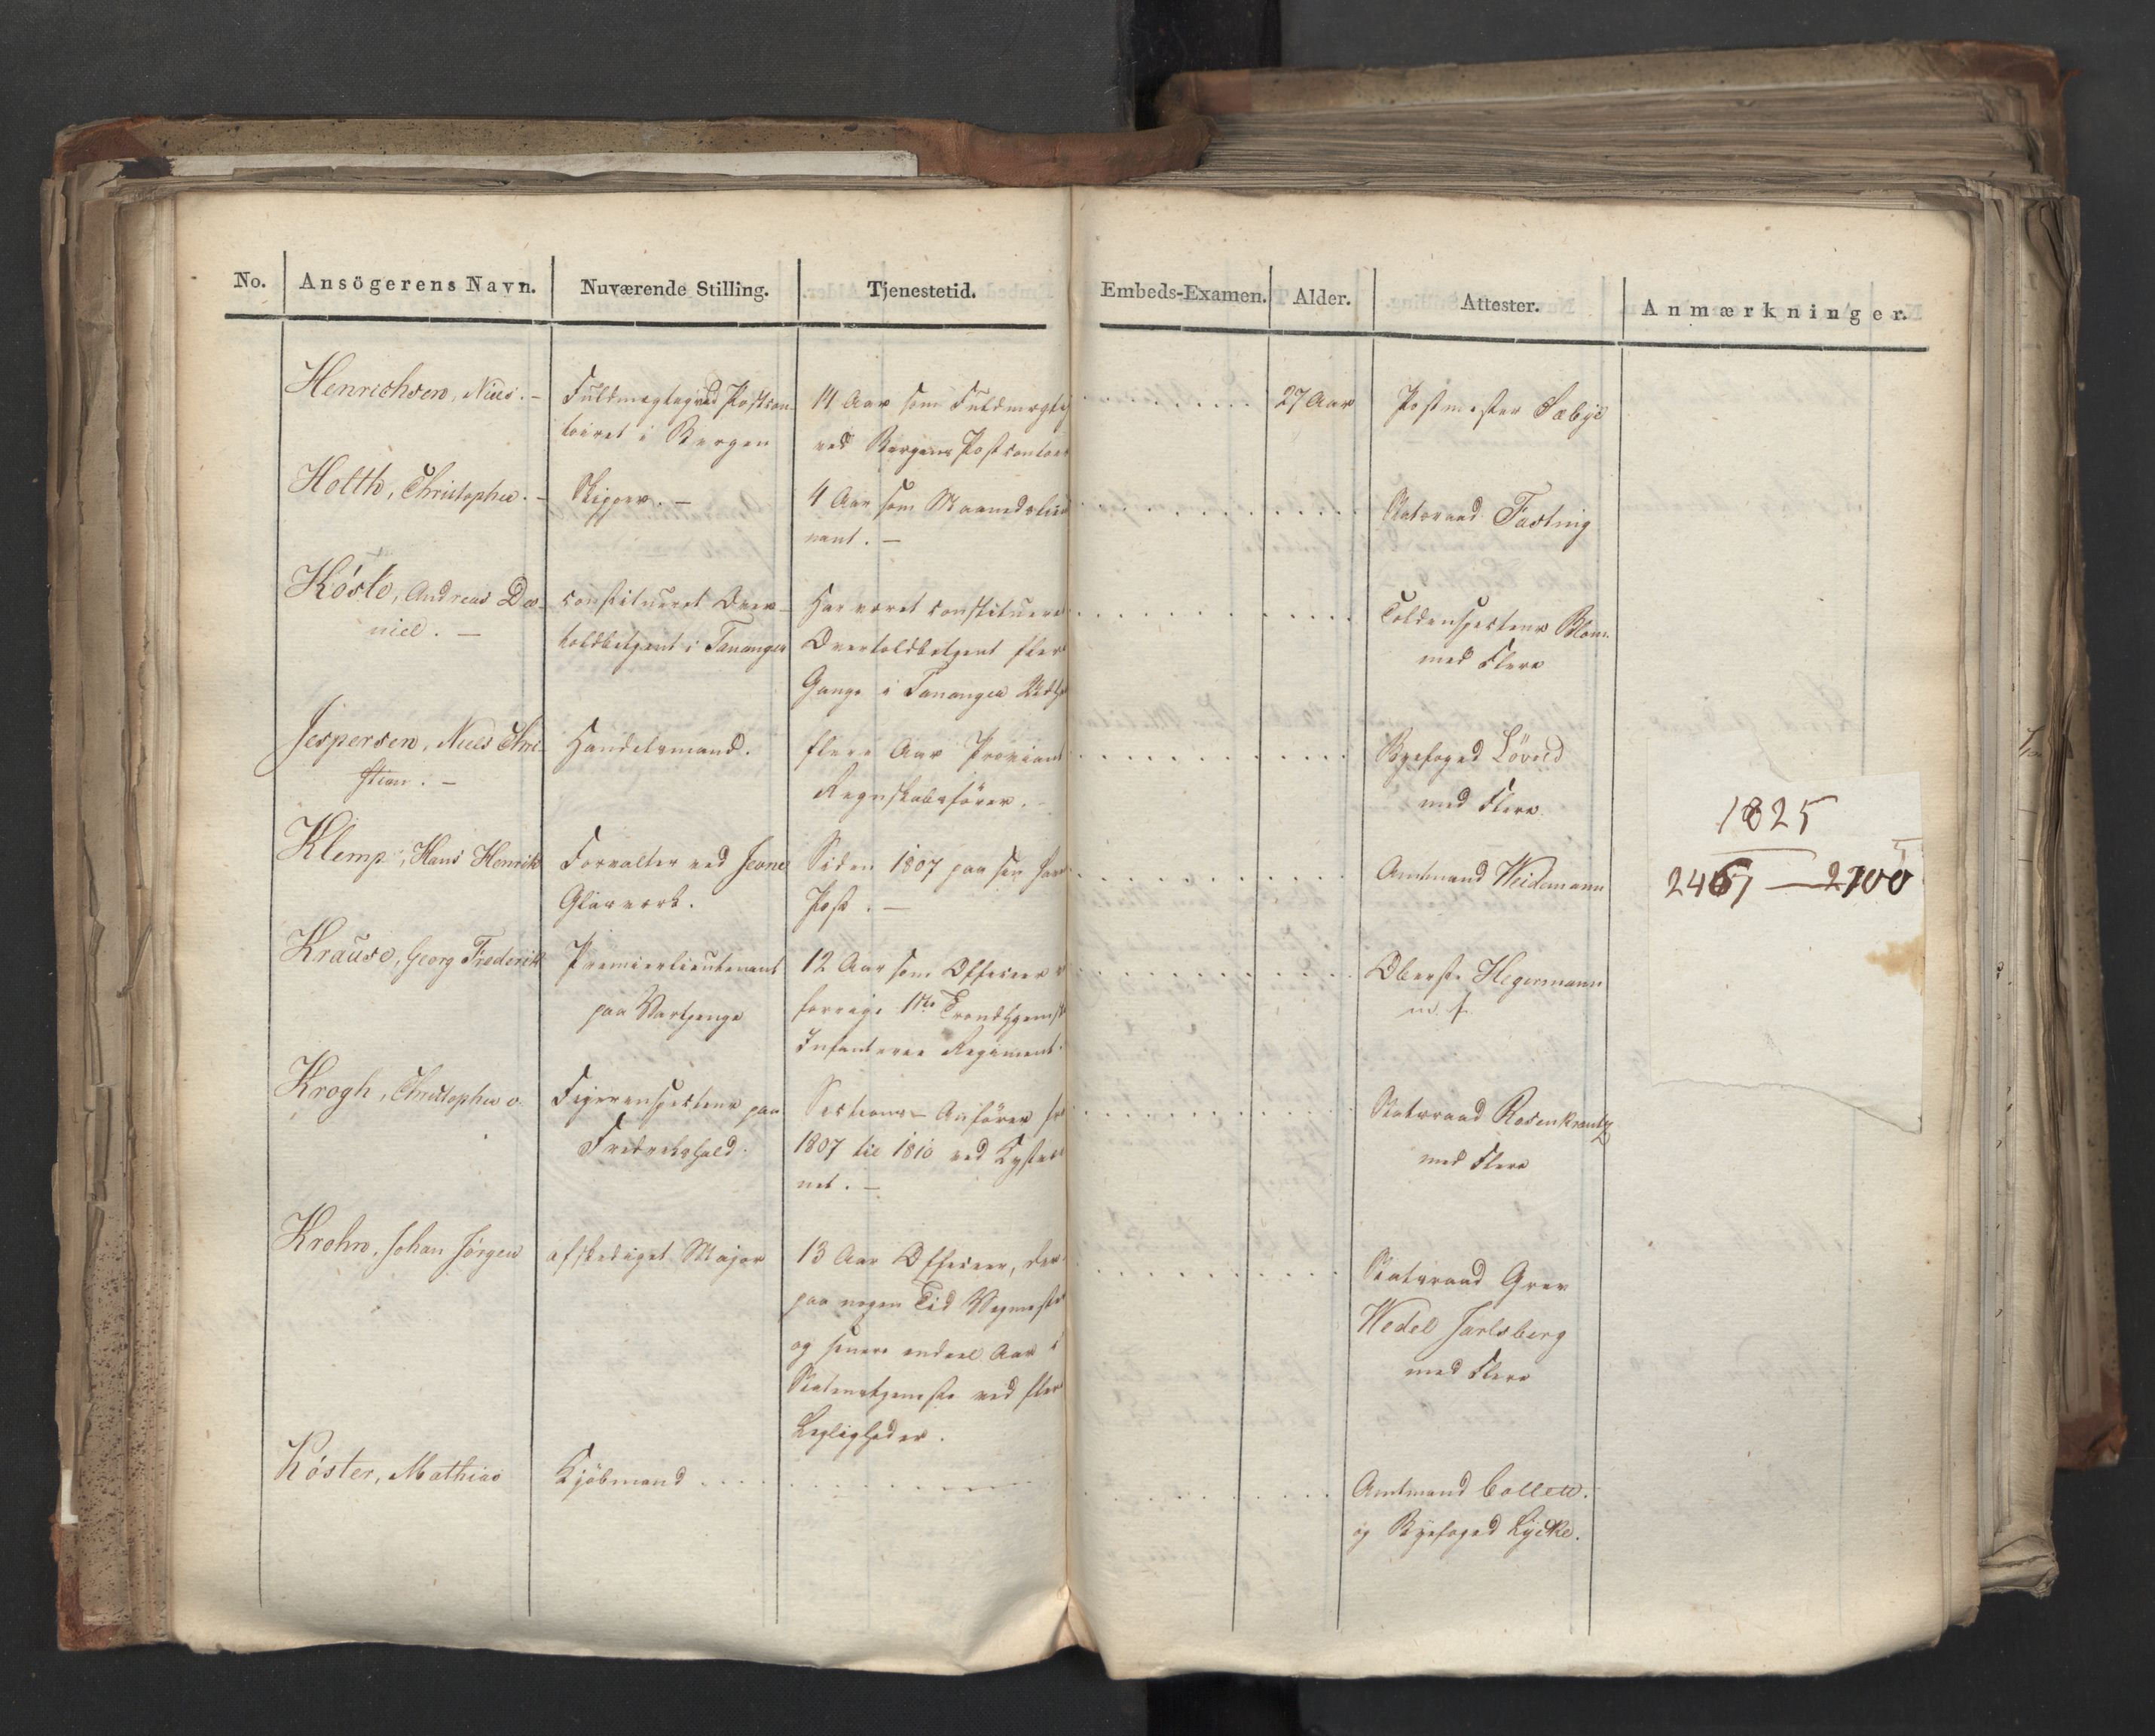 No. Ansögerens Navn. Nuværende Stilling. Tjenestetid. Embeds-Examen. Alder. Attester. Anmærkninger.
Henrichsen, Niels. – Fuldmægtig ved Postcon- 14 Aar som Fuldmægtig 27 Aar Postmester Sæbye
toiret i Bergen ved Bergens Postcontoir
Holth, Christopher. – Skipper. – 4 Aar som Maanedslieut Statsraad Fasting
nant. –
Andreas Da- constitueret Over- Har været constitueret Toldinspecteur Blom
niel. – toldbetjent i Tananger Overtoldbetjent flere med Flere
Gange i Tananger
Jespersen, Niels Chri- Handelsmand. flere Aar Proviant Byefoged Lövold
stian. – Regnskabsfører. – med Flere
Klemp, Hans Henrik Forvalter ved Jevne Siden 1807 paa sin hav Amtmand Weidemann
Glasværk. Post. –
Krause, Georg Frederik Premierlieutenant 12 Aar som Officeer v Oberst Hegermann
paa Vartpenge forrige 1ste Trondhjemsk m. f.
Infanterie Regiment.
Krogh, Christopher v. paa Sections-Anfører fra Statsraad Rosenkrantz
Fredrikshald. 1807 til 1810 ved Kystvær med Flere
net. –
Krohn, Johan Jörgen afskediget Major 13 Aar Officeer, der- Statsraad Grev
paa nogen Tid Veymester Wedel Jarlsberg
og senere endeel Aar i med Flere
Statenstjeneste ved flere
Leyligheder.
Köster, Mathias Kjöbmand Amtmand Collett.
og Byefoged Lycke.
1825
2467 — 2700